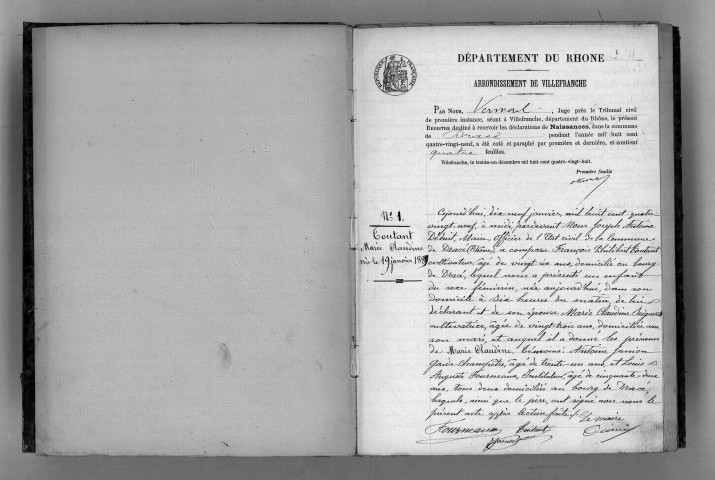 RÉPUBLIQUE FRANÇAISE
DÉPARTEMENT DU RHONE
ARRONDISSEMENT DE VILLEFRANCHE
PAR NOUS, Vermorel, Juge près le Tribunal civil
de première instance, séant à Villefranche, département du Rhône, le présent
REGISTRE destiné à recevoir les déclarations de Naissances, dans la commune
de Dracé pendant l'année mil huit cent
quatre-vingt-neuf, a été coté et paraphé par première et dernière, et contient
quatre feuilles.
Villefranche, le trente-un décembre mil huit cent quatre-vingt-huit.
Première feuille
N° 1.
Toutant
Marie Claudine
née le 19 janvier 1889
Cejourd'hui, dix neuf janvier, mil huit cent quatre
vingt neuf, à midi, pardevant Nous Joseph Antoine
Maire, Officier de l'Etat civil de la Commune
de Dracé (Rhône), a comparu François Philibert Toutant
cultivateur, âgé de vingt six ans, domicilié au bourg
de Dracé, lequel nous a présenté un enfant
du sexe féminin, née aujourd'hui, dans son
domicile à six heures du matin, de lui
déclarant et de son épouse Marie Claudine
cultivatrice, âgée de vingt trois ans, domiciliée avec
son mari, et auquel il a donné les prénoms
de Marie Claudine, témoins: Antoine
Garde Champêtre, âgé de trente un ans, et Louis
Auguste Fourneaux, Instituteur, âgé de cinquante deux
ans, tous deux domiciliés au bourg de Dracé,
lesquels, ainsi que le père, ont signé avec nous le
présent acte après lecture faite.
Le maire
Fourneaux Toutant